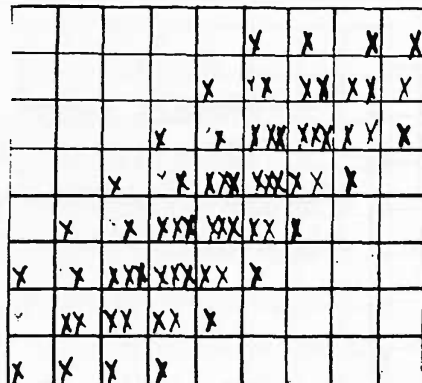 X X X X
X YX XX XX X
X X XXX XXX X Y X
X X XXX XXX X X X
X X XXX XXX XX X
X X XXX XXX XX X
XX XX XX X
X X X X